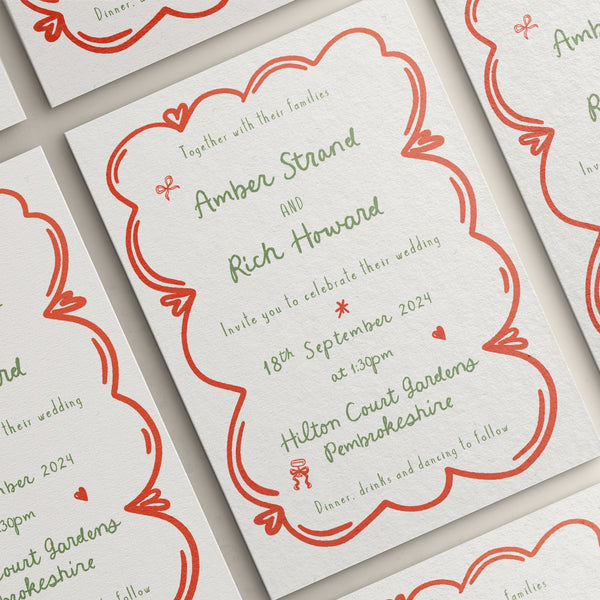 Together with their families
Amber Strand
AND
Rich Howard
Invite you to celebrate their wedding
18th September 2024
at 1:30pm
Hilton Court Gardens
Pembrokeshire
Dinner, drinks and dancing to follow
Dinner,
Amber
R
Invite
rd
their wedding
mber 2024
1:30pm
Court Gardens
mbrokeshire
dancing to follow
families